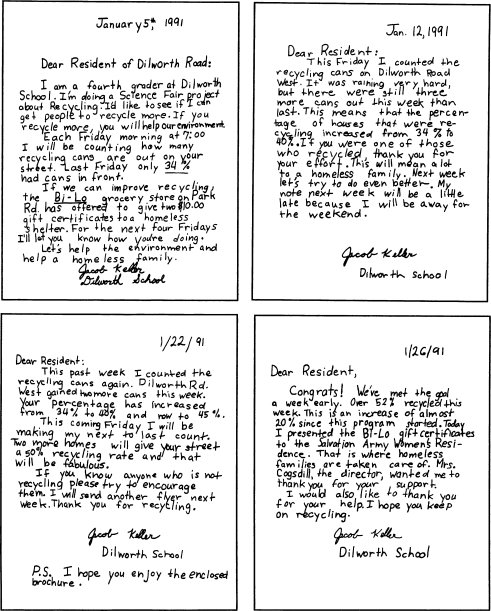 January 5th, 1991
Dear Resident of Dilworth Road:
I am a fourth grader at Dilworth
School. I'm doing a Science Fair project
about Recycling. I'd like to see if I can
get people to recycle more. If you
recycle more, you will help our environment.
Each Friday morning at 7:00
I will be counting how many
recycling cans are out on your
street. Last Friday only 34 %
had cans in front.
If we can improve recycling,
the Bi-Lo grocery store on Park
Rd. has offered to give two $10.00
gift certificates to a homeless
shelter. For the next four Fridays
I'll let you know how you're doing.
Let's help the environment and
help a homeless family.
Jacob Keller
Dilworth School
Jan. 12, 1991
Dear Resident:
This Friday I counted the
recycling cans on Dilworth Road
West. It was raining very hard,
but there were still three
more cans out this week than
last. This means that the percen-
tage of houses that were re-
cycling increased from 34 % to
40%. If you were one of those
who recycled, thank you for
your effort. This will mean a lot
to a homeless family. Next week
let's try to do even better. My
note next week will be a little
late because I will be away for
the weekend.
Jacob Keller
Dilworth School
1/22/91
Dear Resident:
This past week I counted the
recycling cans again. Dilworth Rd.
West gained two more cans this week.
Your percentage has increased
from 34% to 40% and now to 45 %.
This coming Friday I will be
making my next to last count.
Two more homes will give your street
a 50% recycling rate and that
will be fabulous.
If you know anyone who is not
recycling please try to encourage
them. I will send another flyer next
week. Thank you for recycling.
Jacob Keller
Dilworth School
P.S. I hope you enjoy the enclosed
brochure.
1/26/91
Dear Resident,
Congrats! We've met the goal
a week early. Over 52% recycled this
week. This is an increase of almost
20% since this program started. Today
I presented the BI-Lo gift certificates
to the Salvation Army Women's Resi-
dence. That is where homeless
families are taken care of. Mrs.
Cogsdill, the director, wanted me to
thank you for your support.
I would also like to thank you
for your help. I hope you keep
on recycling.
Jacob Keller
Dilworth School